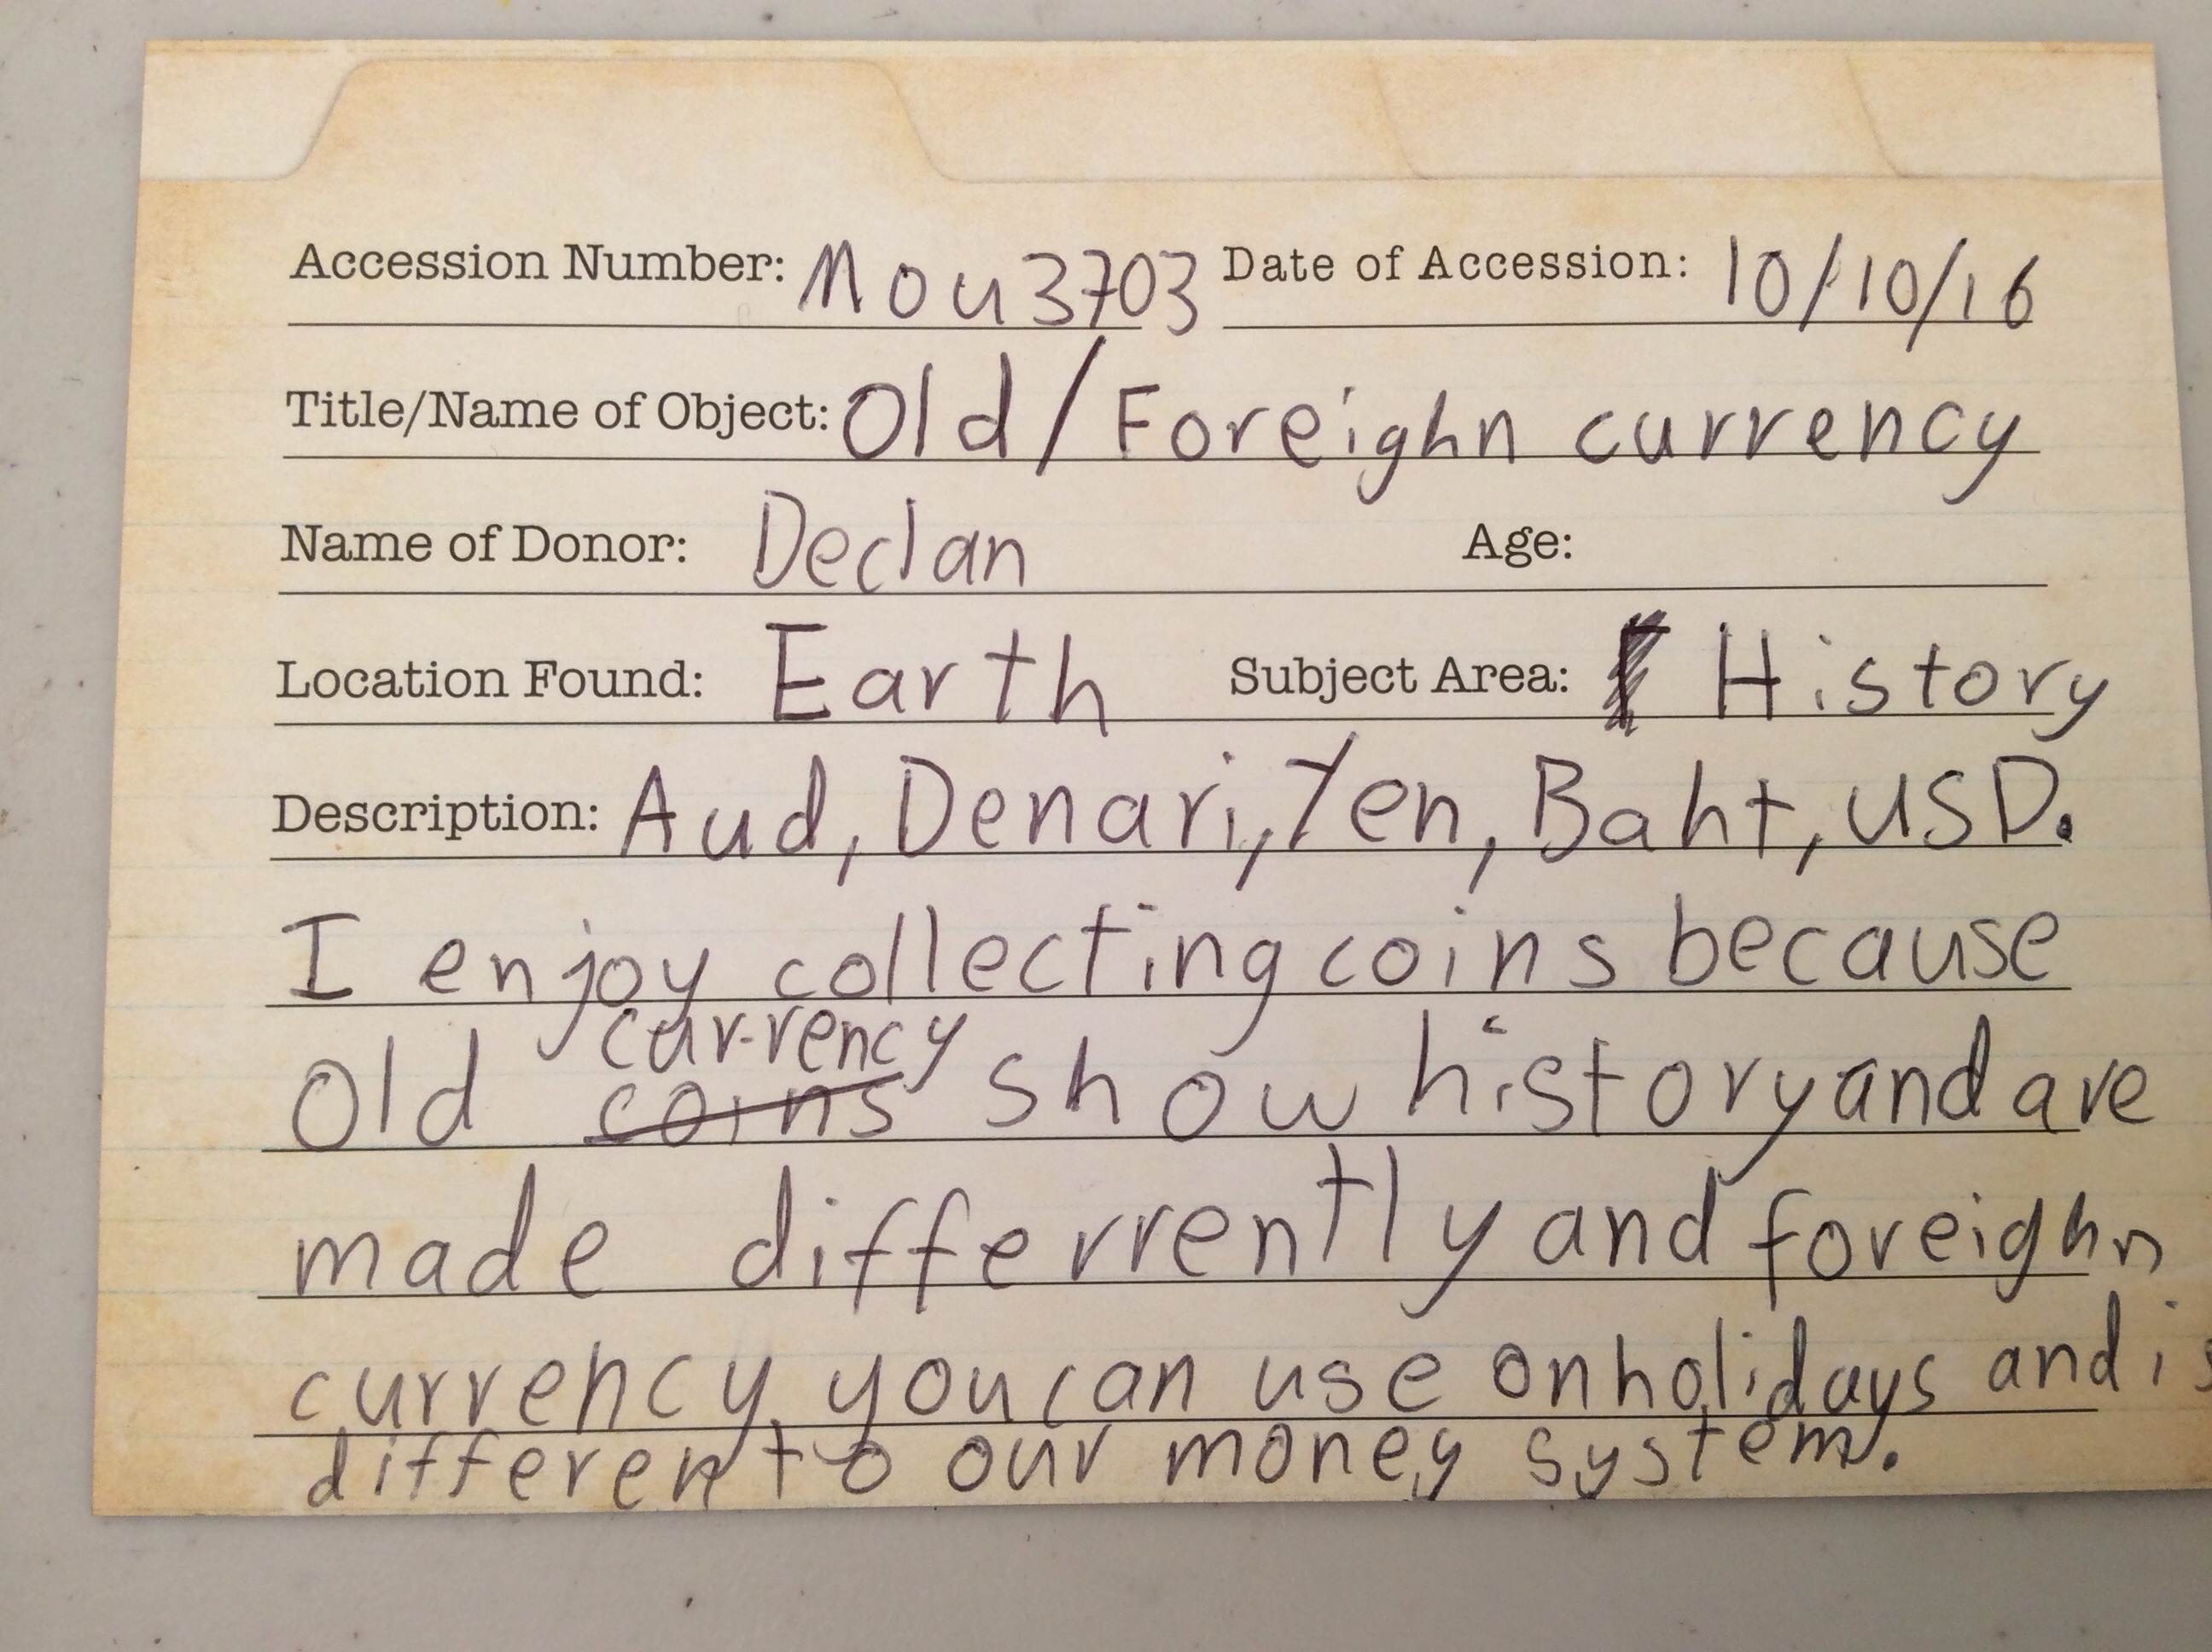 Accession Number: Mou3703 Date of Accession: 10/10/16
Title/Name of Object: Old/Foreighn currency
Name of Donor: Declan Age:
Location Found: Earth Subject Area: History
Description: Aud, Denari, Yen, Baht, USD.
I enjoy collecting coins because
currency
Old coins show history and are
made differrently and foreighn
currency you can use on holidays and is
different to our money system.